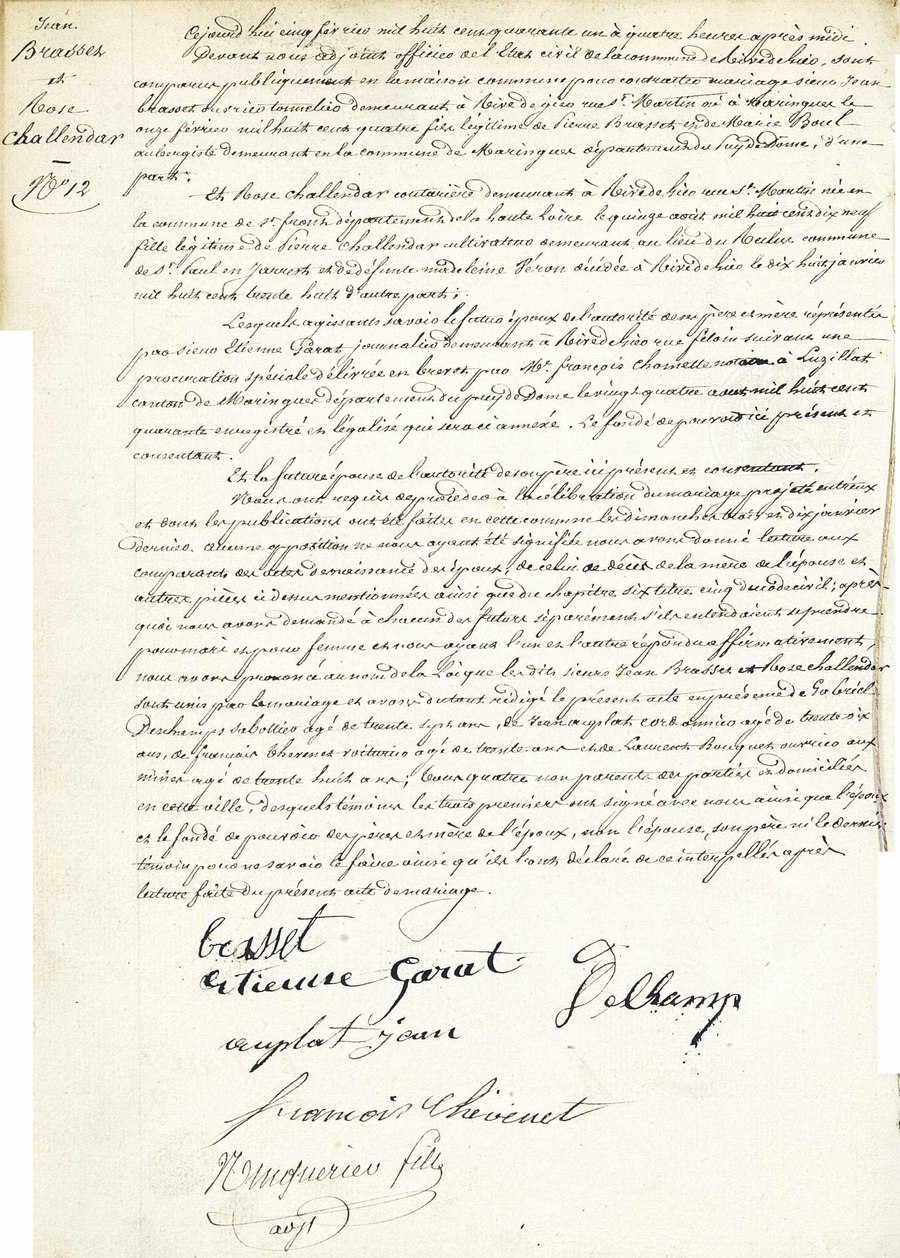 Jean
Brasset
et
Rose
Challendar
No 12
Cejourd'hui cinq février mil huit cent quarante un à quatre heures après midi.
Devant nous adjoint officier de l'Etat civil de la commune de Rivedegier, sont
comparus publiquement en la maison commune pour contracter mariage sieur Jean
brasset ouvrier tonnelier demeurant à Rive de gier rue St. Martin né à Maringues le
onze février mil huit cent quatre fils légitime de Pierre Brasset et de Marie
aubergiste demeurant en la commune de Maringues département du Puy de Dome, d'une
part.
Et Rose Challendar couturière demeurant à Rivedegier rue St. Martin née en
la commune de St. front département de la haute Loire le quinze août mil huit cent dix neuf
fille légitime de Pierre Challendar cultivateur demeurant au lieu du Reclus commune
de St. Paul en Jarrest et de défunte madeleine Péron décédée à Rivedegier le dix huit janvier
mil huit cent trente huit d'autre part;
Lesquels agissants savoir le futur époux de l'autorité de ses père et mère réprésentés
par sieur Etienne Garat journalier demeurant à Rivedegier rue féloin suivant une
procuration spéciale délivrée en brevet par Me. françois Chomette notaire à Luzillat
canton de Maringues département du puy de Dome le vingt quatre aout mil huit cent
quarante enregistré et légalisé qui sera ci annexé. Le fondé de pouvoir ici présent et
consentant.
Et la future épouse de l'autorité de son père ici présent et consentant.
Nous ont requis de procéder à la célébration du mariage projeté entr'eux
et dont les publications ont été faites en cette commune les dimanches trois et dix janvier
dernier. aucune opposition ne nous ayant été signifiée nous avons donné lecture aux
comparants des actes de naissance des époux, de celui de décès de la mère de l'épouse et
autres pièces ci dessus mentionnées ainsi que du chapitre six titre cinq du code civil; après
quoi nous avons demandé à chacun des futurs séparément s'ils entendaient se prendre
pour mari et pour femme et nous ayant l'un et l'autre répondu affirmativement,
nous avons prononcé au nom de la Loi que les dits sieurs Jean Brasset et Rose Challendar
sont unis par le mariage et avons du tout rédigé le présent acte en présence de Gabriel
Deschamps sabottier agé de trente sept ans, de Jean auplat cordonnier agé de trente six
ans, de françois Chevenet voiturier agé de trente ans et de Laurent Bouquet ouvrier aux
mines agé de trente huit ans; tous quatre non parents des parties et domiciliés
en cette ville, desquels témoins les trois premiers ont signé avec nous ainsi que l'époux
et le fondé de pouvoir des pères et mère de l'époux, non l'épouse, son père ni le dernier
témoin pour ne savoir le faire ainsi qu'ils l'ont déclaré de ce interpellés après
lecture faite du présent acte de mariage.
brasset
etienne Garat
DeChamp
auplat jean
francois Chevenet
fils
adjt